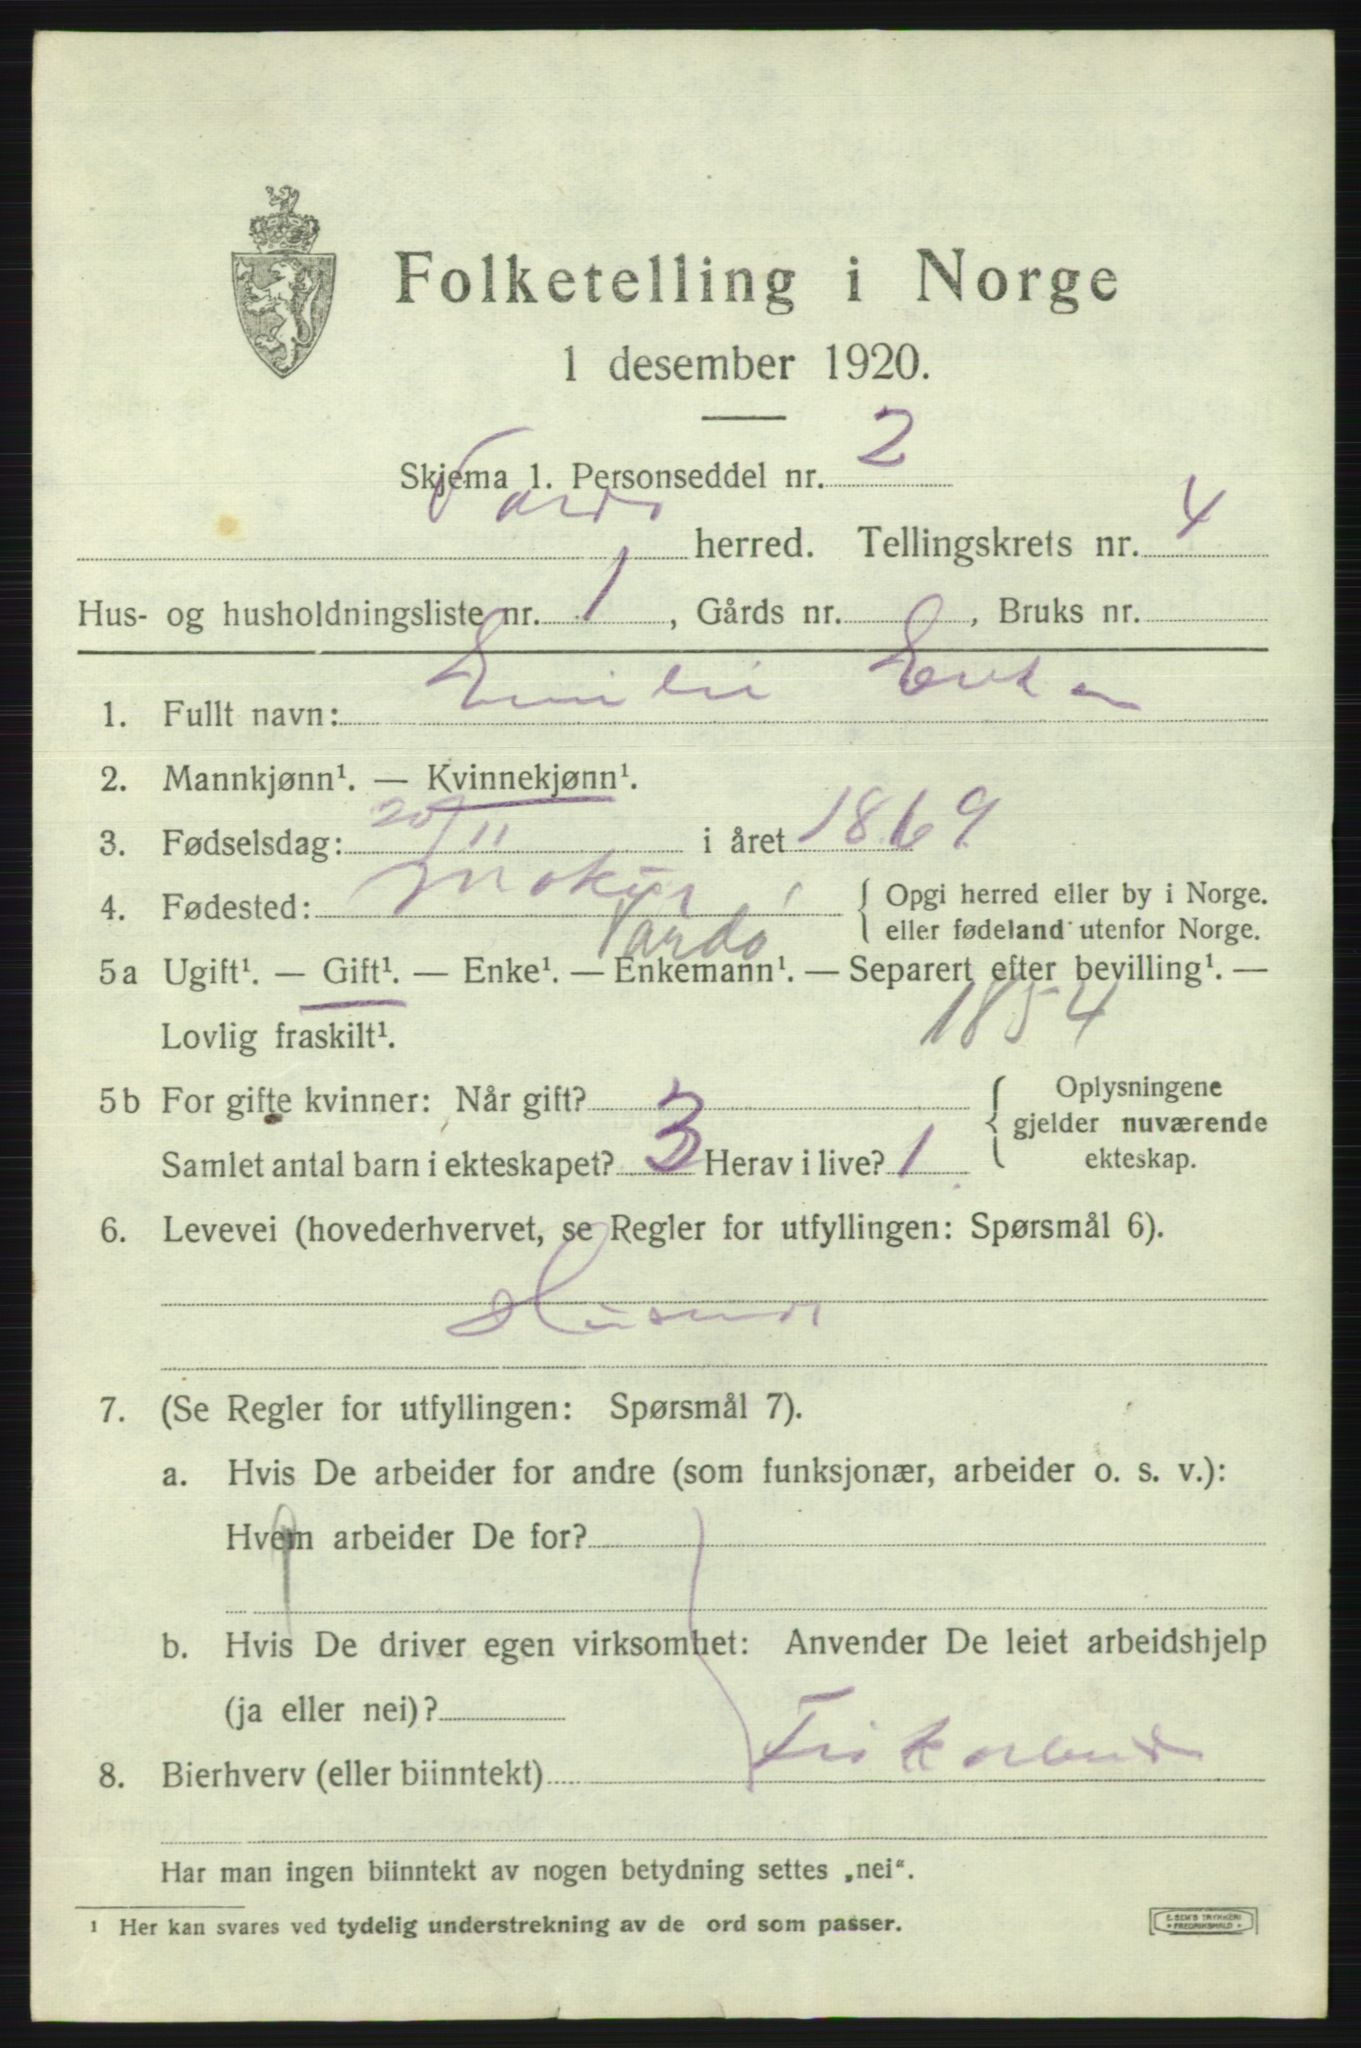 Folketelling i Norge
1 desember 1920.
Skjema 1. Personseddel nr. 2
Vardø herred. Tellingskrets nr. 4
Hus- og husholdningsliste nr. 1, Gårds nr. , Bruks nr.
1. Fullt navn: Emilie
2. Mannkjønn¹. — Kvinnekjønn¹.
3. Fødselsdag: 20/11 i året 1869
4. Fødested: { Opgi herred eller by i Norge.
Vardø eller fødeland utenfor Norge.
5a Ugift¹. — Gift¹. — Enke¹. — Enkemann¹. — Separert efter bevilling¹. —
Lovlig fraskilt¹. 1854
5b For gifte kvinner: Når gift? { Oplysningene
gjelder nuværende
Samlet antal barn i ekteskapet? 3 Herav i live? 1 ekteskap.
6. Levevei (hovederhvervet, se Regler for utfyllingen: Spørsmål 6).
7. (Se Regler for utfyllingen: Spørsmål 7).
a. Hvis De arbeider for andre (som funksjonær, arbeider o. s. v.):
Hvem arbeider De for?
b. Hvis De driver egen virksomhet: Anvender De leiet arbeidshjelp
(ja eller nei)?
8. Bierhverv (eller biinntekt)
Har man ingen biinntekt av nogen betydning settes „nei“.
¹ Her kan svares ved tydelig understrekning av de ord som passer.
E. SEM'S TRYKKERI
FREDRIKSHALD